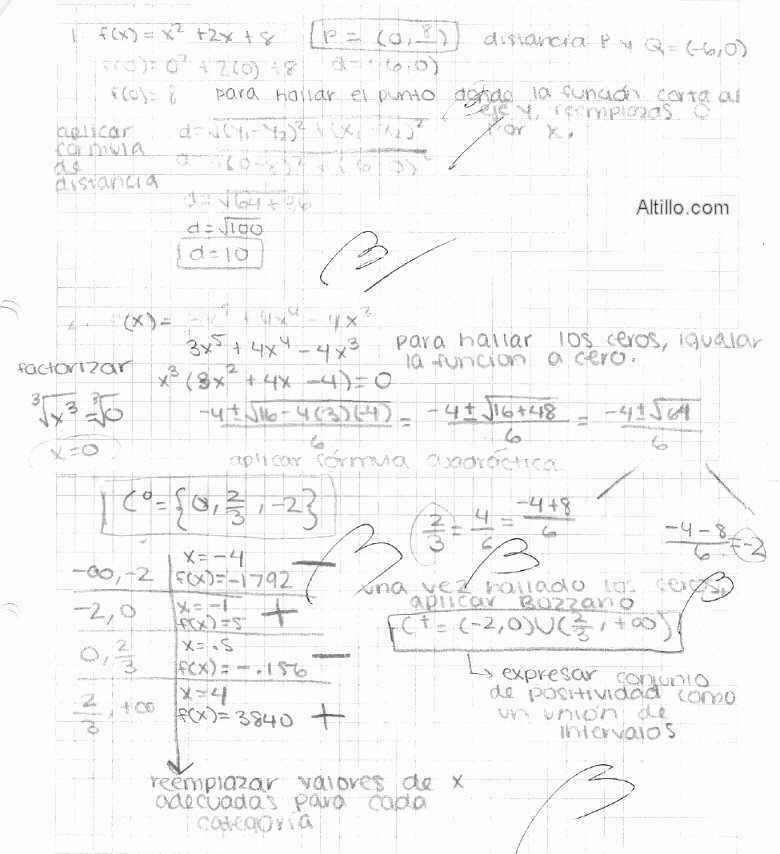 1 f(x) = x² + 2x + 8 P = (0, 8) distancia P y Q = (-6,0)
f(0) = 0² + 2(0) + 8 d = (-6,0)
f(0) = 8 para hallar el punto donde la función corta al
eje y, reemplazas 0
por x.
aplicar
formula
de
distancia
d = √(y₁-y₂)² + (x₁-x₂)²
d = √64 + 36
d = √100
d = 10
Altillo.com
3x⁵ + 4x⁴ - 4x³
para hallar los ceros, igualar
la funcion a cero.
factorizar
x³ (3x² + 4x - 4) = 0
∛x³ = ∛0
x = 0
-4 ± √16 - 4(3)(-4) / 6 = -4 ± √16 + 48 / 6 = -4 ± √64 / 6
aplicar fórmula cuadráctica
C⁰ = {0, 2/3, -2}
2/3 = 4/6 = -4 + 8 / 6
-4 - 8 / 6 = -2
-∞, -2 x = -4 f(x) = -1792 -
-2, 0 x = -1 f(x) = 5 +
0, 2/3 x = .5 f(x) = -.156 -
2/3, +∞ x = 4 f(x) = 3840 +
una vez hallado los ceros,
aplicar Bozzano
C⁺ = (-2,0) ∪ (2/3, +∞)
↳ expresar conjunto
de positividad como
un unión de
intervalos
reemplazar valores de x
adecuadas para cada
categoría